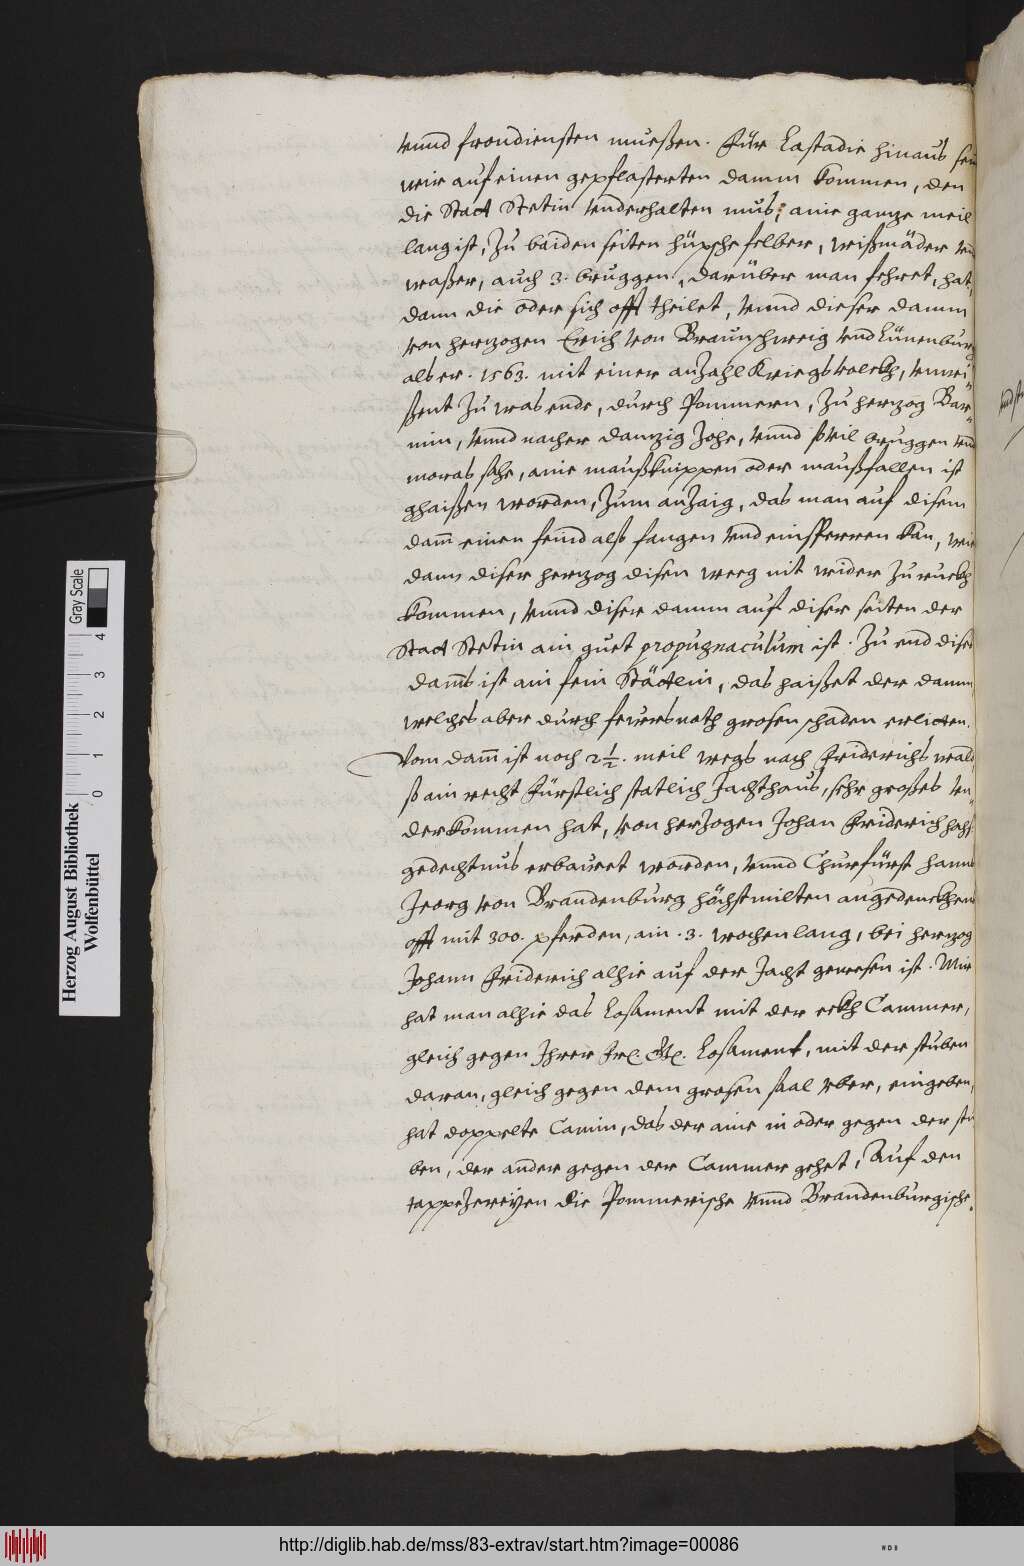 vnnd frondiensten mueßen. Für Lastadie hinaus sein
wir auf einen gepflasterten damm kommen, den
die Stadt Stetin vnderhalten mus, aine gantze meil
lang ist, Zu baiden seiten hüpsche felder, wißmäder vnd
waßer, auch 3. bruggen, darüber man fehret, hat,
dann die oder sich offt theilet, vnnd dieser damm
von hertzogen Erich von Braunschweig vnd Lünenburg
als er. 1563. mit einer anzahl Kriegsvolckh, vnwei„
ßent zu was ende, durch Pommern, zu hertzog Bar„
nim, vnnd nacher dantzig zohe, vnnd sovil bruggen vnd
moras sahe, aine maußknippen oder maußfallen ist
ghaißen worden, zum anzaig, das man auf disem
dam̄ einen feind alß fangen vnd einsperren kan, wie
dann diser hertzog disen weeg nit wider zuruckh
kommen, vnnd diser damm auf diser seiten der
Stadt Stetin ain guet propugnaculum ist. Zu end dises
dam̄s ist ain fein Stättlin, das haißet der damm
welches aber durch feursnoth grosen schaden erlitten.
Vom dam̄ ist noch 2 1/2. meil wegs nach Friderichswald,
so ain recht Fürstlich statlich Jachthaus, sehr großes vn„
derkommen hat, von hertzogen Johan Friderich hochst
gedechtnus erbawet worden, vnnd Churfürst hanns
Jeorg von Brandenburg höchstmilten angedenckhens
offt mit 300. pferden, ain .3. wochen lang, bei hertzog
Johann Friderich alhie auf der Jacht gewesen ist. Mir
hat man alhie das Losament mit der eckh Cammer,
gleich gegen Ihrer Fr. Gl. Losament, mit der stuben
daran, gleich gegen dem grosen saal vber, eingeben,
hat doppelte Camin, das der aine in oder gegen der stu
ben, der ander gegen der Cammer gehet, Auf den
tappezereijen die Pommerische vnnd Brandenburgische
Herzog August Bibliothek
Wolfenbüttel
0 1 2 3 4 Gray Scale
http://diglib.hab.de/mss/83-extrav/start.htm?image=00086